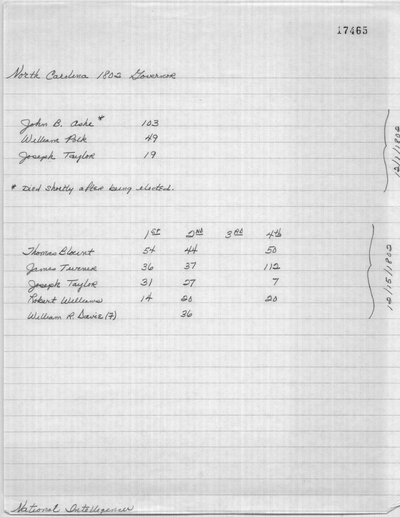 17465
North Carolina 1802 Governor
John B. Ashe * 103
William Polk 49
Joseph Taylor 19
12/1/1802
* Died shortly after being elected.
1st 2nd 3rd 4th
Thomas Blount 54 44 50
James Turner 36 37 112
Joseph Taylor 31 27 7
Robert Williams 14 20 20
William R. Davie (7) 36
12/15/1802
National Intelligencer